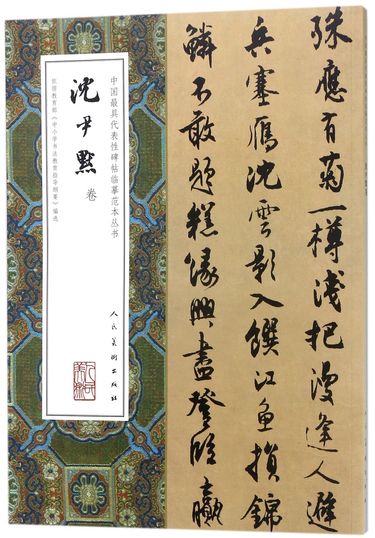 殊應有菊一樽淺把漫逢人避
兵塞雁沈雲影入饌江魚損錦
鱗不敢題糕緣興盡登臨贏
中国最具代表性碑帖临摹范本丛书
沈尹默 卷
依据教育部《中小学书法教育指导纲要》编选
人民美术出版社